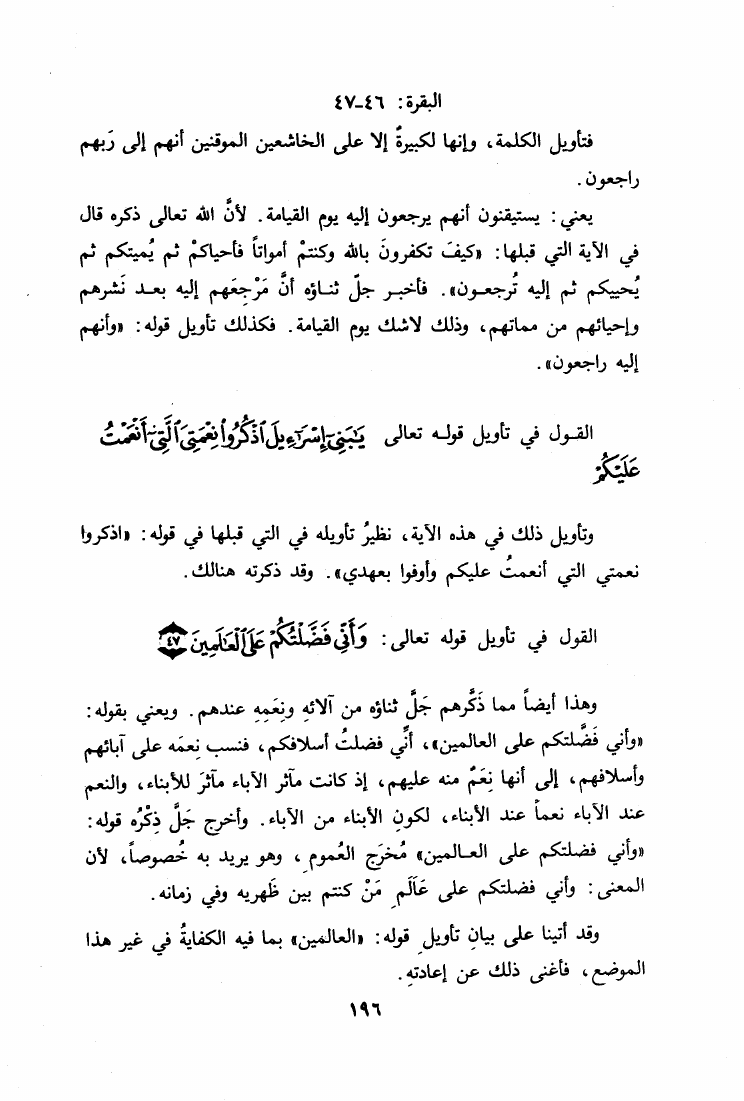 البقرة: ٤٦-٤٧
فتأويل الكلمة، وإنها لكبيرةٌ إلا على الخاشعين الموقنين أنهم إلى رَبهم
راجعون.
يعني: يستيقنون أنهم يرجعون إليه يوم القيامة. لأنَّ الله تعالى ذكره قال
في الآية التي قبلها: «كيفَ تكفرونَ بالله وكنتمْ أمواتاً فأحياكمْ ثم يُميتكم ثم
يُحييكم ثم إليه تُرجعـون». فأخبـر جلّ ثنـاؤه أنَّ مَرْجِعَهم إليه بعـد نَشرهم
وإحيائهم من مماتهم، وذلك لاشك يوم القيامة. فكذلك تأويل قوله: «وأنهم
إليه راجعون».
القـول في تأويل قولـه تعالى يَٰبَنِىٓ إِسْرَٰٓءِيلَ ٱذْكُرُوا۟ نِعْمَتِىَ ٱلَّتِىٓ أَنْعَمْتُ
عَلَيْكُمْ
وتأويل ذلك في هذه الآية، نظيرُ تأويله في التي قبلها في قوله: «اذكروا
نعمتي التي أنعمتُ عليكم وأوفوا بعهدي». وقد ذكرته هنالك.
القول في تأويل قوله تعالى: وَأَنِّى فَضَّلْتُكُمْ عَلَى ٱلْعَٰلَمِينَ ٤٧
وهذا أيضاً مما ذَكَّرهم جَلَّ ثناؤه من آلائهِ ونِعَمِهِ عندهم. ويعني بقوله:
«وأني فَضَّلتكم على العالمين»، أنِّي فضلتُ أسلافكم، فنسب نِعمَه على آبائهم
وأسلافهم، إلى أنها نِعَمٌ منه عليهم، إذ كانت مآثر الآباء مآثرَ للأبناء، والنعم
عند الآباء نعماً عند الأبناء، لكونِ الأبناء من الآباء. وأخرج جَلَّ ذِكْرُه قوله:
«وأني فضلتكم على العـالمين» مُخرَج العُمومِ، وهو يريد به خُصوصاً، لأن
المعنى: وأني فضلتكم على عَالَمِ مَنْ كنتم بين ظَهريه وفي زمانه.
وقد أتينا على بيانِ تأويلِ قوله: «العالمين» بما فيه الكفايةُ في غير هذا
الموضع، فأغنى ذلك عن إعادتهِ.
١٩٦